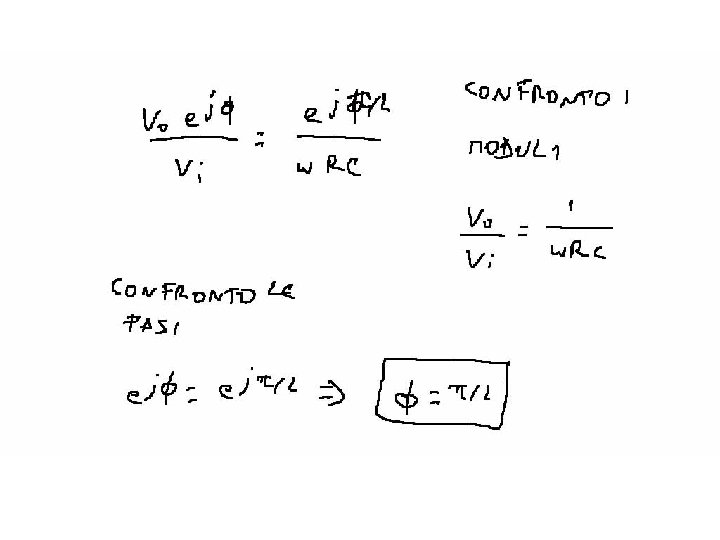 V₀ e^{jϕ} / Vi = e^{jπ/2} / wRC
CONFRONTO I
MODULI
V₀ / Vi = 1 / wRC
CONFRONTO LE
FASI
e^{jϕ} = e^{jπ/2} ⇒ ϕ = π/2